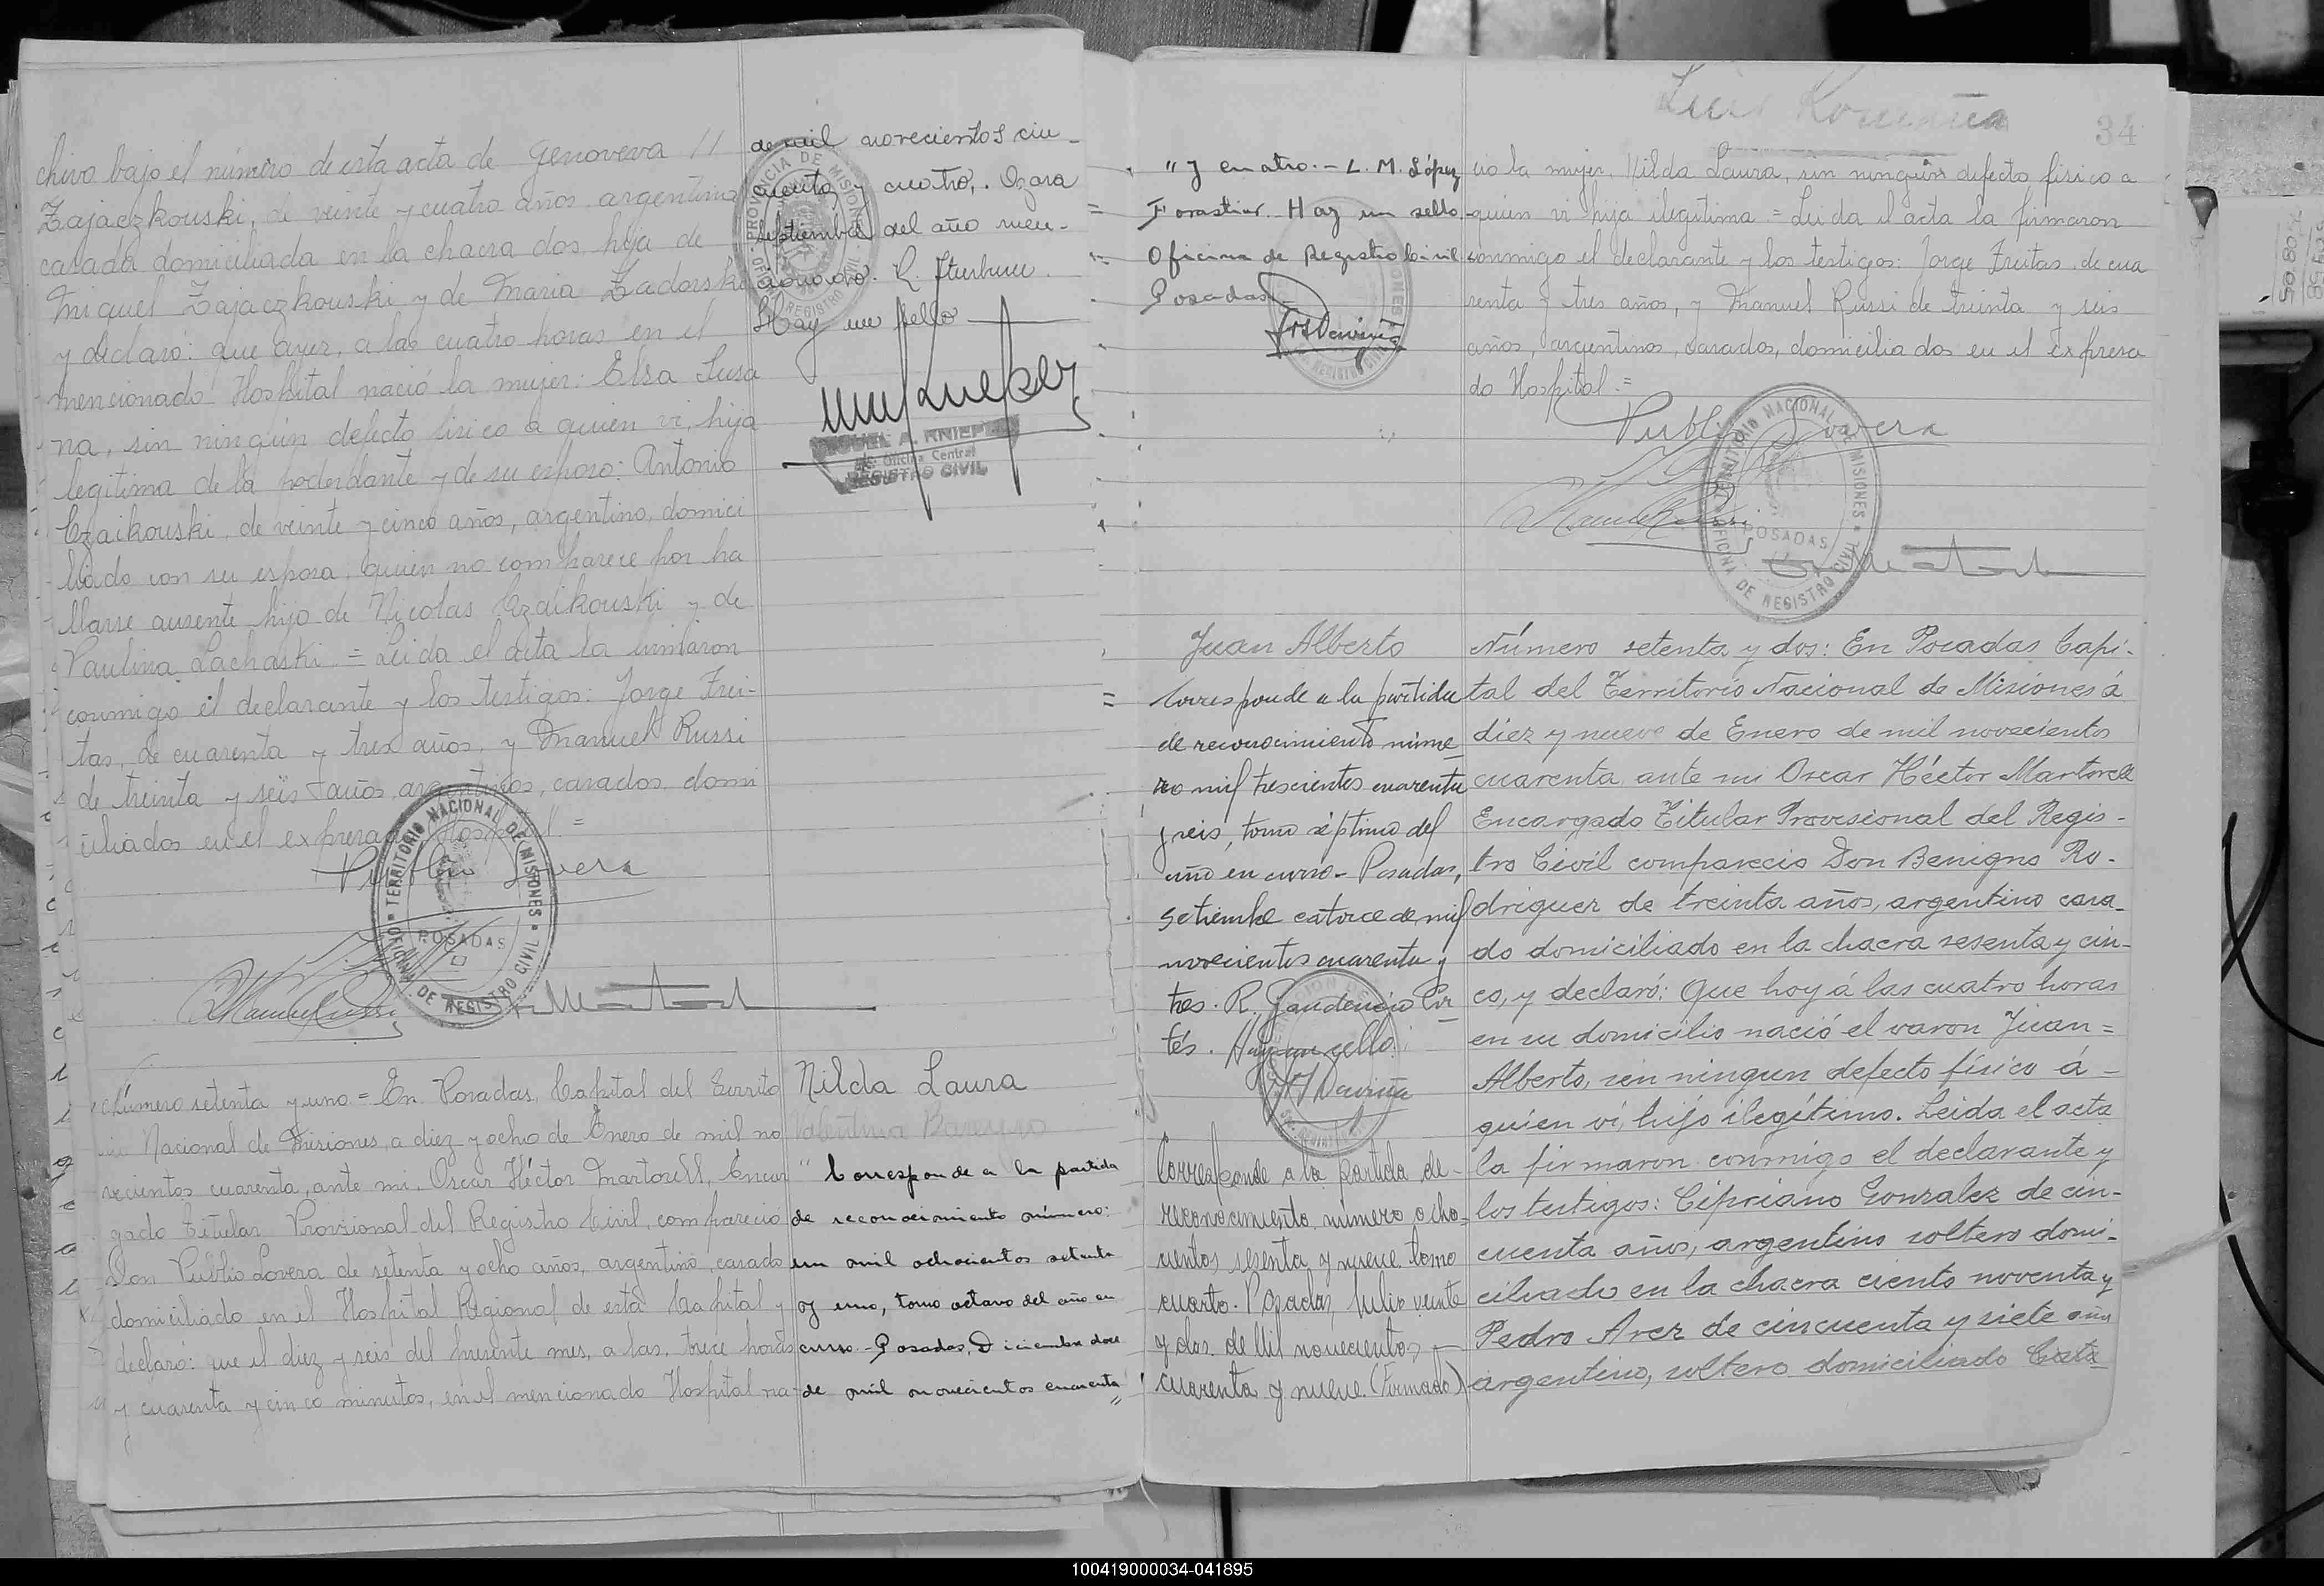 chivo bajo el número de esta acta de Genoveva
Zajaczkouski, de veinte y cuatro años, argentina
casada domiciliada en la chacra dos, hija de
Miguel Zajaczkouski y de Maria Zadorski
y declaró: que ayer, a las cuatro horas en el
mencionado Hospital nació la mujer: Elsa Susa
na, sin ningún defecto fisico a quien vi, hija
legitima de la poderdante y de su esposo: Antonio
Czaikouski, de veinte y cinco años, argentino, domici
liado con su esposa, quien no comparece por ha
llarse ausente hijo de Nicolas Czaikouski y de
Paulina Lachaski = Leida el acta la firmaron
conmigo el declarante y los testigos: Jorge Frei-
tas, de cuarenta y tres años, y Manuel Russi
de treinta y seis años, argentinos, casados, domi
ciliados en el expresado Hospital =
Publio Lovera
TERRITORIO NACIONAL DE MISIONES
POSADAS
OFICINA DE REGISTRO CIVIL
Número setenta y uno = En Posadas, Capital del Territo
rio Nacional de Misiones, a diez y ocho de Enero de mil no
vecientos cuarenta, ante mi, Oscar Héctor Martorell, Encar
gado Titular Provisional del Registro Civil, compareció
Don Publio Lovera de setenta y ocho años, argentino, casado
domiciliado en el Hospital Regional de esta Capital y
declaró: que el diez y seis del presente mes, a las trece horas
y cuarenta y cinco minutos, en el mencionado Hospital na-
de mil novecientos cin-
cuenta y cuatro,.
septiembre del año men-
Hay un sello
PROVINCIA DE MISIONES
REGISTRO CIVIL
MIGUEL A. KNIEPER
Oficina Central
REGISTRO CIVIL
Nilda Laura
Valentina Barreyro
" Corresponde a la partida
de reconocimiento número:
un mil ochocientos setenta
y uno, tomo octavo del año en
curso - Posadas, Diciembre doce
de mil novecientos cuarenta "
" y cuatro. - L. M. López
Forastier. Hay un sello.
Oficina de Registro Civil
Posadas.
34
cio la mujer, Nilda Laura, sin ningún defecto fisico a
quien vi hija ilegitima = Leida el acta la firmaron
conmigo el declarante y los testigos: Jorge Freitas, de cua
renta y tres años, y Manuel Russi de treinta y seis
años, argentinos, casados, domiciliados en el expresa
do Hospital. =
Publio Lovera
TERRITORIO NACIONAL DE MISIONES
POSADAS
OFICINA DE REGISTRO CIVIL
Juan Alberto
Corresponde a la partida
de reconocimiento núme
ro mil trescientos cuarenta
y seis, tomo séptimo del
año en curso - Posadas,
Setiembre catorce de mil
novecientos cuarenta y
tres. R. Gaudencio Cor
tés. Hay un sello
Corresponde a la partida de-
reconocimiento número ocho-
cientos sesenta y nueve tomo
cuarto. Posadas, Julio veinte
y dos de Mil novecientos
cuarenta y nueve. (Firmado)
Número setenta y dos: En Posadas Capi-
tal del Territorio Nacional de Misiones á
diez y nueve de Enero de mil novecientos
cuarenta ante mi Oscar Héctor Martorell
Encargado Titular Provisional del Regis-
tro Civil comparecio Don Benigno Ro-
driguez de treinta años, argentino casa-
do domiciliado en la chacra sesenta y cin-
co, y declaró: Que hoy á las cuatro horas
en su domicilio nació el varon Juan =
Alberto, sin ningun defecto físico á -
quien ví, hijo ilegítimo. Leida el acta
la firmaron conmigo el declarante y
los testigos: Cipriano Gonzalez de cin-
cuenta años, argentino soltero domi-
ciliado en la chacra ciento noventa y
Pedro Arez de cincuenta y siete años
argentino, soltero domiciliado
100419000034-041895